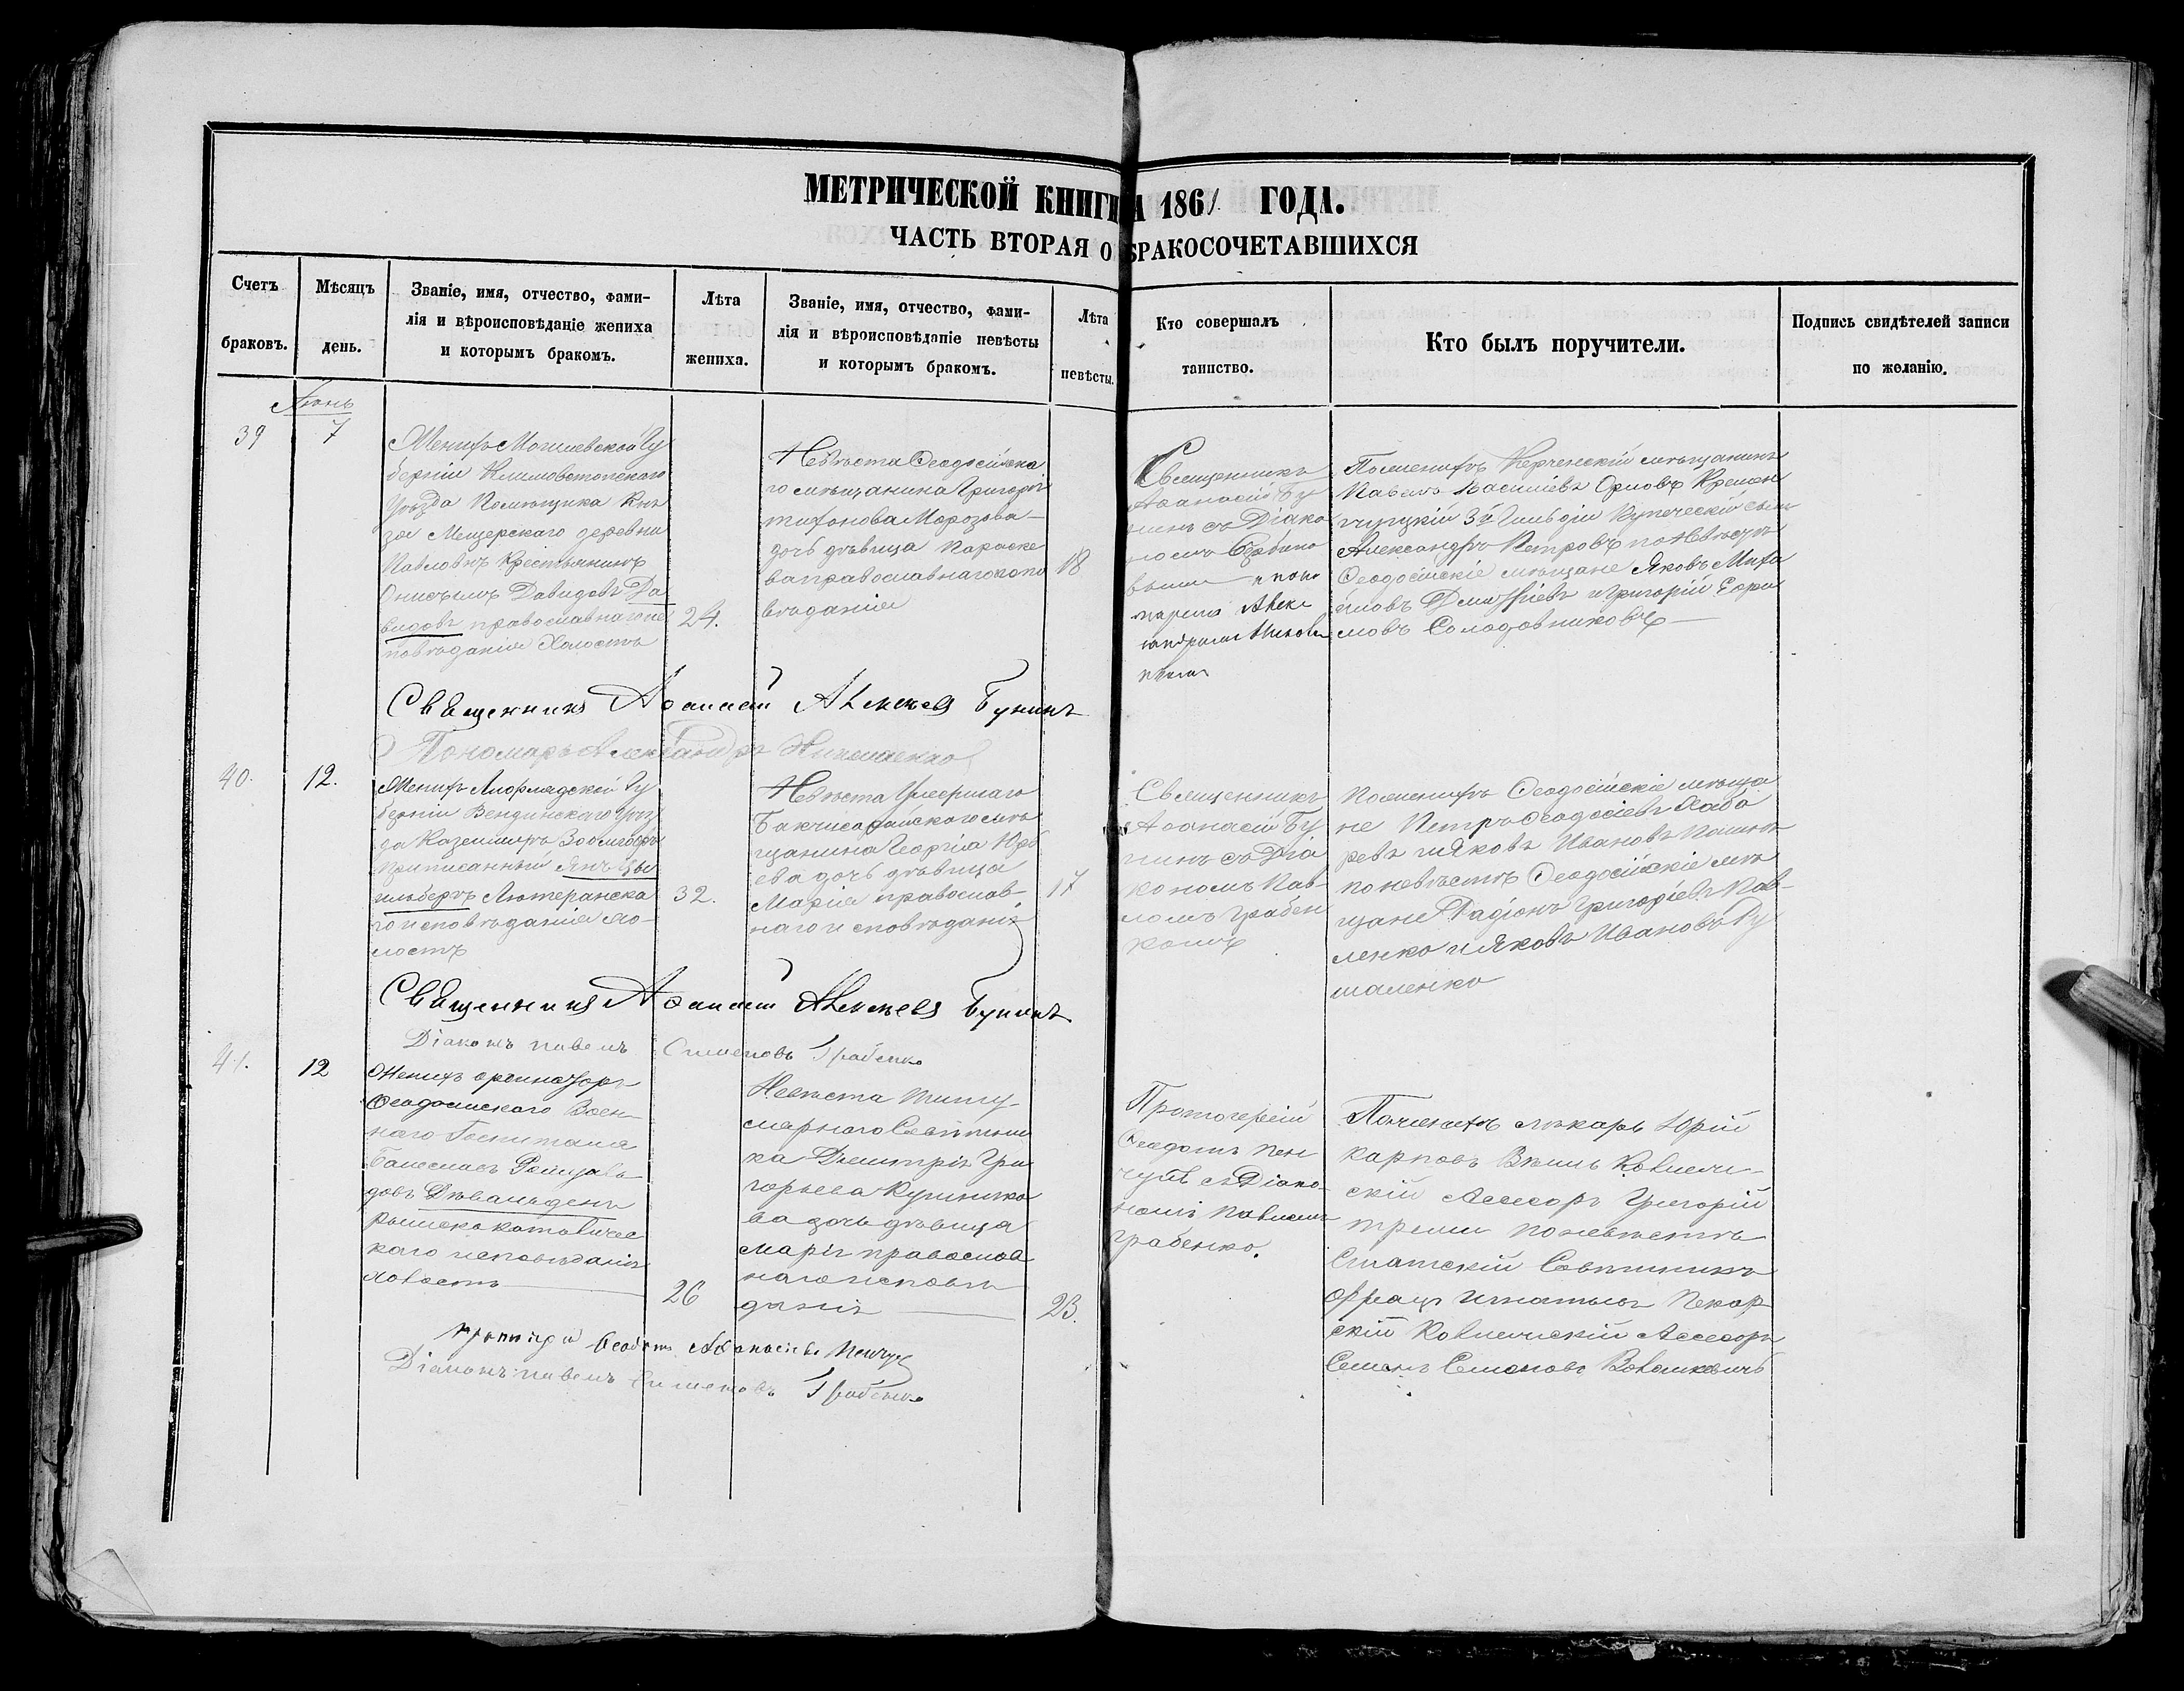 МЕТРИЧЕСКОЙ КНИГИ НА 1861 ГОДА.
ЧАСТЬ ВТОРАЯ О БРАКОСОЧЕТАВШИХСЯ
Счетъ браковъ.
Мѣсяцъ день.
Званіе, имя, отчество, фами-
лія и вѣроисповѣданіе жениха
и которымъ бракомъ.
Лѣта жениха.
Званіе, имя, отчество, фами-
лія и вѣроисповѣданіе невѣсты
и которымъ бракомъ.
Лѣта невѣсты.
Кто совершалъ
таинство.
Кто былъ поручители.
Подпись свидѣтелей записи
по желанію.
Іюнь
39
7
Женихъ Могилевской Гу
берніи Климовецкаго
Уѣзда Помѣщика Кня
зя Мещерскаго деревни
Павловкъ Крестьянинъ
Онисимъ Давидовъ Да
видовъ православнаго ис
повѣданія Холостъ
24.
Невѣста Ѳеодосійска
го мѣщанина Григорія
Тифонова Морозова
дочь дѣвица Параске
ва православнаго испо
вѣданія
18
Священникъ
Аѳанасій Бу
нинъ съ Діако
номъ
и поно
маремъ Алек
сандромъ
По женихѣ Керченскій мѣщанинъ
Павелъ Васильевъ Орловъ Кремен
чугцкій 3й Гильдіи Купеческій сынъ
Александръ Петровъ по Невѣстѣ
Ѳеодосійскіе мѣщане Яковъ Миха
йловъ Дмитріевъ и Григорій Ефи
мовъ Солодовниковъ
Священникъ Аѳанасій Алексеевъ Бунинъ
Пономарь Александръ
40.
12.
Женихъ Лифляндской Гу
берніи Венденскаго Уѣз
да Каземиръ
приписанный Янъ Цы
мберъ Лютеранска
го исповѣданія хо-
лостъ
32.
Невѣста
Бакчисарайскаго мѣ
щанина Георгія Юрь
ева дочь дѣвица
Марія православ-
наго исповѣданія
17
Священникъ
Аѳанасій Бу
нинъ съ Діа
кономъ Пав-
ломъ Грабен
комъ
По женихѣ Ѳеодосійскіе мѣща
не Петръ Ѳеодосіевъ Хаба
ревъ и Яковъ Ивановъ
по невѣстѣ Ѳеодосійскіе мѣ
щане Радіонъ Григорьевъ Пав-
ленко и Яковъ Ивановъ Ру
шаленко
Священникъ Аѳанасій Алексеевъ Бунинъ
Діаконъ Павелъ Симеоновъ Грабенко
41.
12
Женихъ ординаторъ
Ѳеодосійскаго Воен-
наго Госпиталя
Балеславъ
довъ
римско католичес
каго исповѣданія
холостъ
26
Невѣста Титу-
лярнаго Совѣтни
ка Дмитрія Гри
горьева Кушнико
ва дочь дѣвица
Марія православ
наго исповѣ
данія
23.
Протоіерей
Ѳеодотъ Пен
чулъ съ Діако-
номъ Павломъ
Грабенко.
По женихѣ лѣкарь Юрій
Карповъ
скій Асессоръ Григорій
по невѣстѣ
Статскій Совѣтникъ
Францъ Игнатьевъ Пекар
скій Коллежскій Асессоръ
Семенъ Семеновъ
Протоіерей Ѳеодотъ Аѳанасіевъ
Діаконъ Павелъ Симеоновъ Грабенко